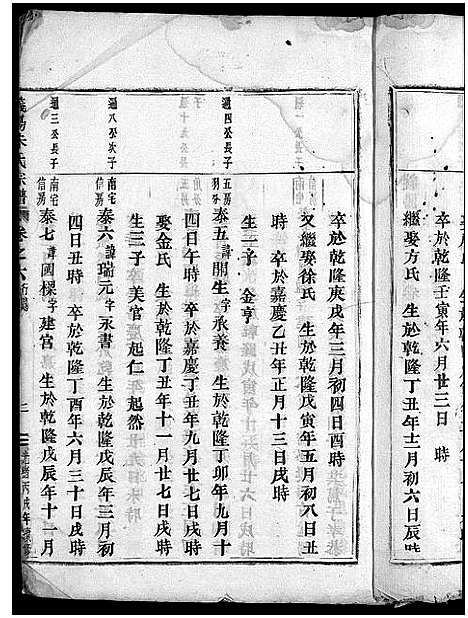 卒於乾隆壬寅年六月廿三日 時
繼娶方氏 生於乾隆丁丑年十二月初六日辰時
卒於乾隆庚戌年三月初四日酉時
又繼娶徐氏 生於乾隆戊寅年五月初八日丑
時 卒於嘉慶乙丑年正月十三日戌時
生一子 金亨
週四公長子
五房
泰五 諱開生 字承養 生於乾隆丁卯年九月十
四日午時 卒於嘉慶丁丑年九月廿七日戌時
娶金氏 生於乾隆丁丑年十一月廿七日戌時
生三子 美官 起仁 起然
週八公次子
南宅
信房
泰六 諱瑞元 字永書 生於乾隆戊辰年三月初
四日丑時 卒於乾隆丁酉年六月三十日戌時
週三公長子
南宅
信房
泰七 諱國樑 字建宮 生於乾隆戊辰年十一月
朱氏宗譜 卷之六